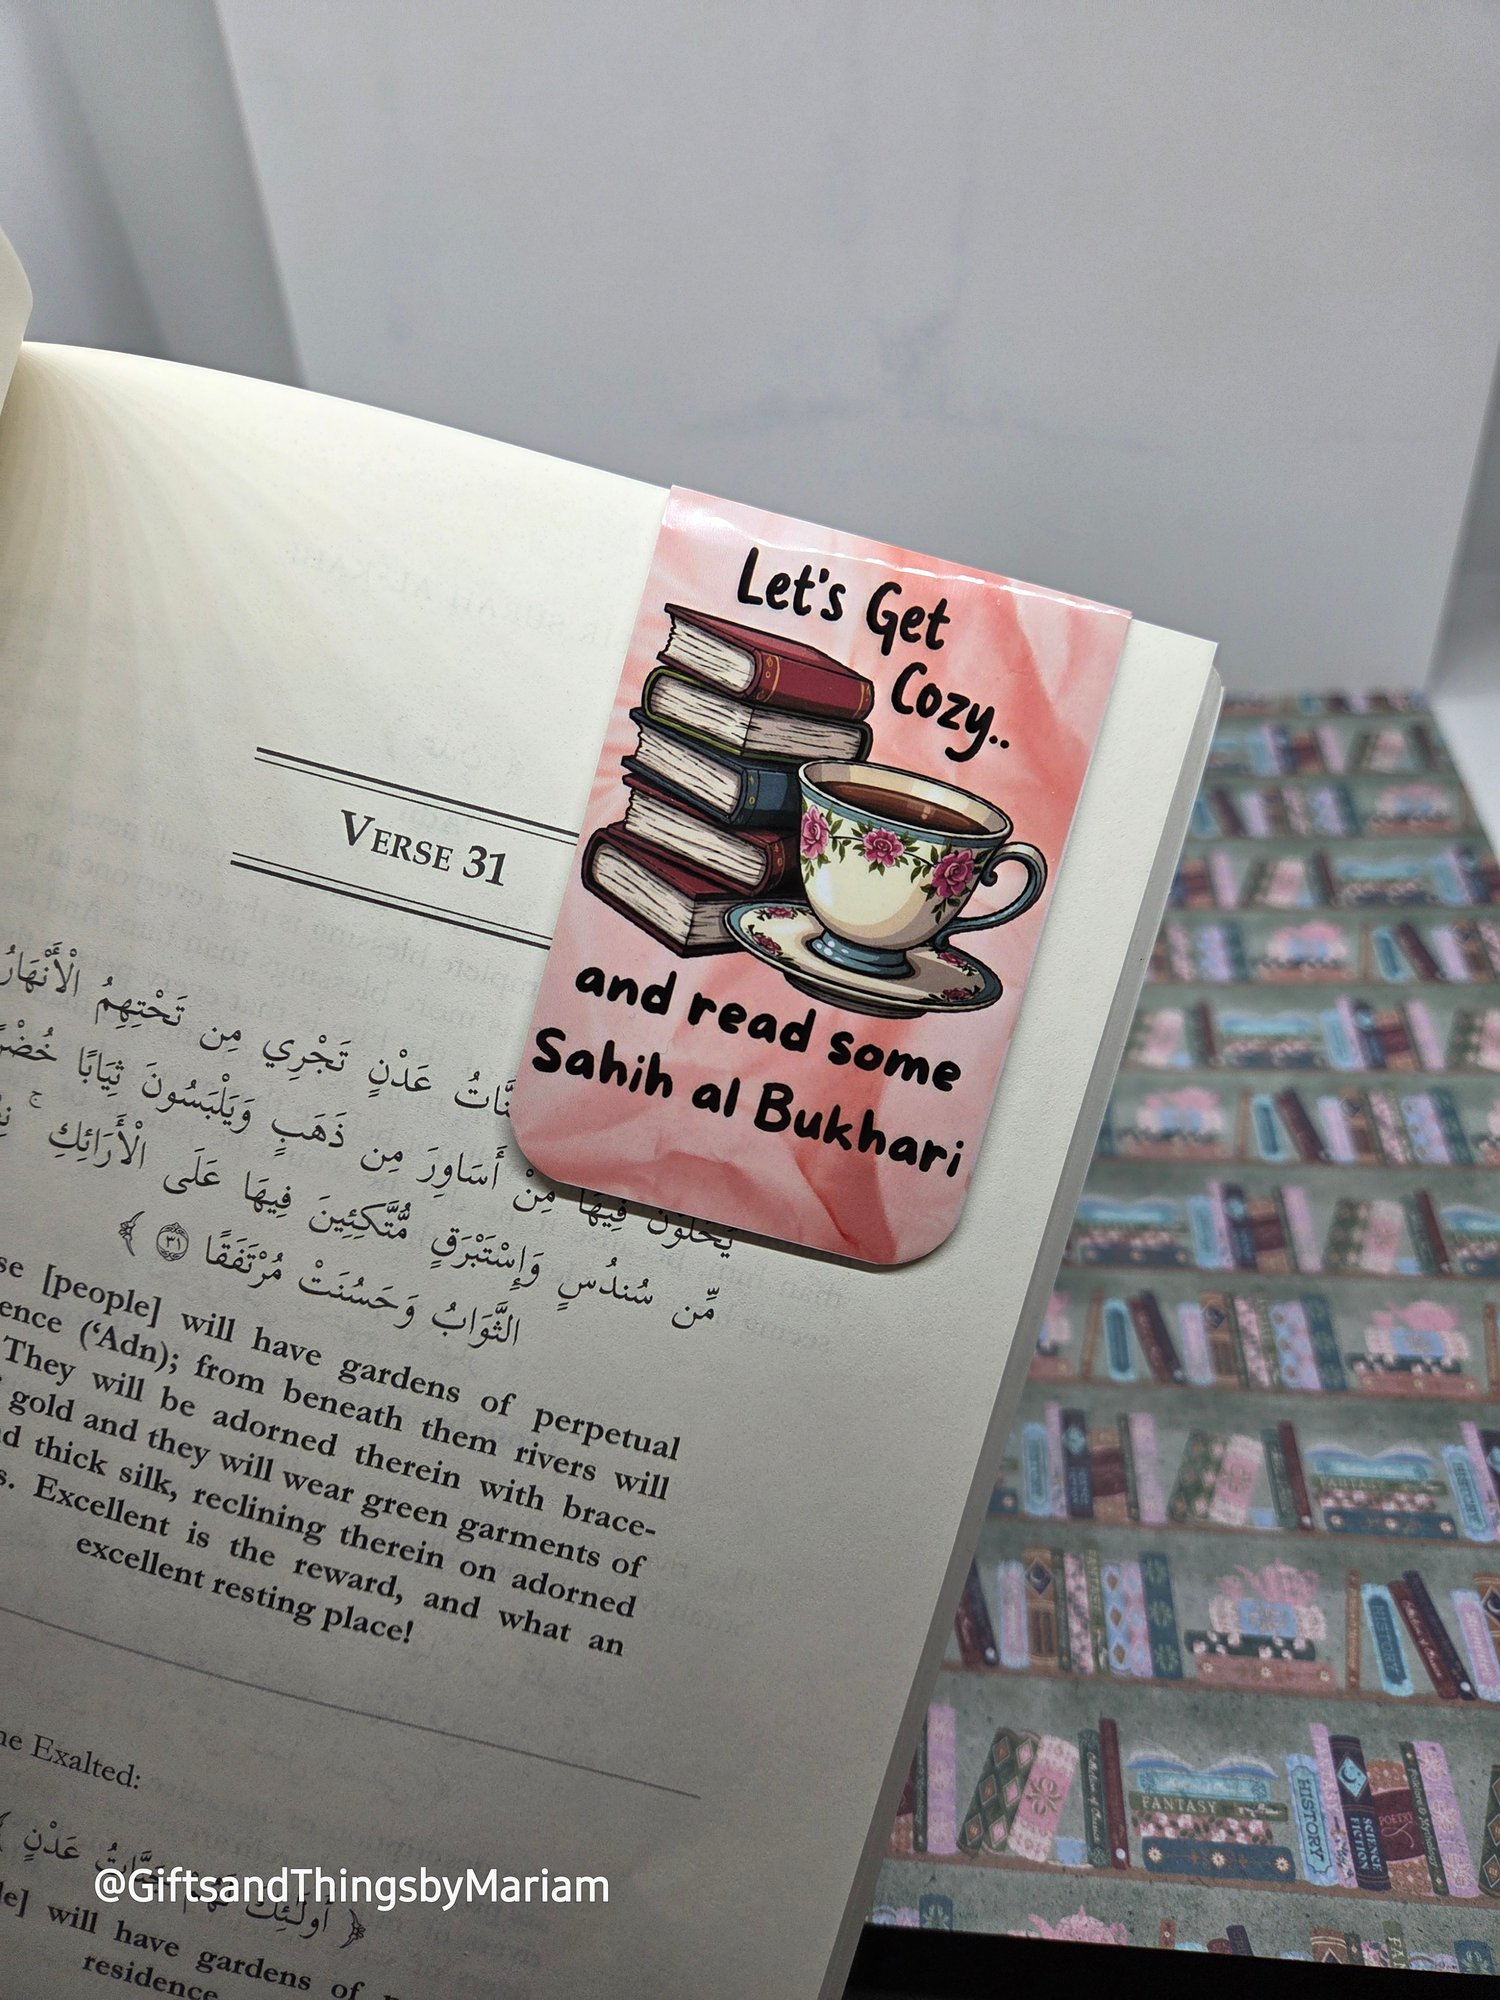 Let's Get
Cozy..
and read some
Sahih al Bukhari
VERSE 31
عَدْنٍ تَجْرِي مِن تَحْتِهِمُ الْأَنْهَارُ
يُحَلَّوْنَ فِيهَا مِنْ أَسَاوِرَ مِن ذَهَبٍ وَيَلْبَسُونَ ثِيَابًا
مِّن سُندُسٍ وَإِسْتَبْرَقٍ مُّتَّكِئِينَ فِيهَا عَلَى الْأَرَائِكِ ۚ
الثَّوَابُ وَحَسُنَتْ مُرْتَفَقًا ﴿٣١﴾
[people] will have gardens of perpetual
(‘Adn); from beneath them rivers will
They will be adorned therein with brace-
gold and they will wear green garments of
thick silk, reclining therein on adorned
Excellent is the reward, and what an
excellent resting place!
Exalted:
عَدْنٍ
will have gardens of
residence
@GiftsandThingsbyMariam
FANTASY
HISTORY
SCIENCE
FICTION
POETRY